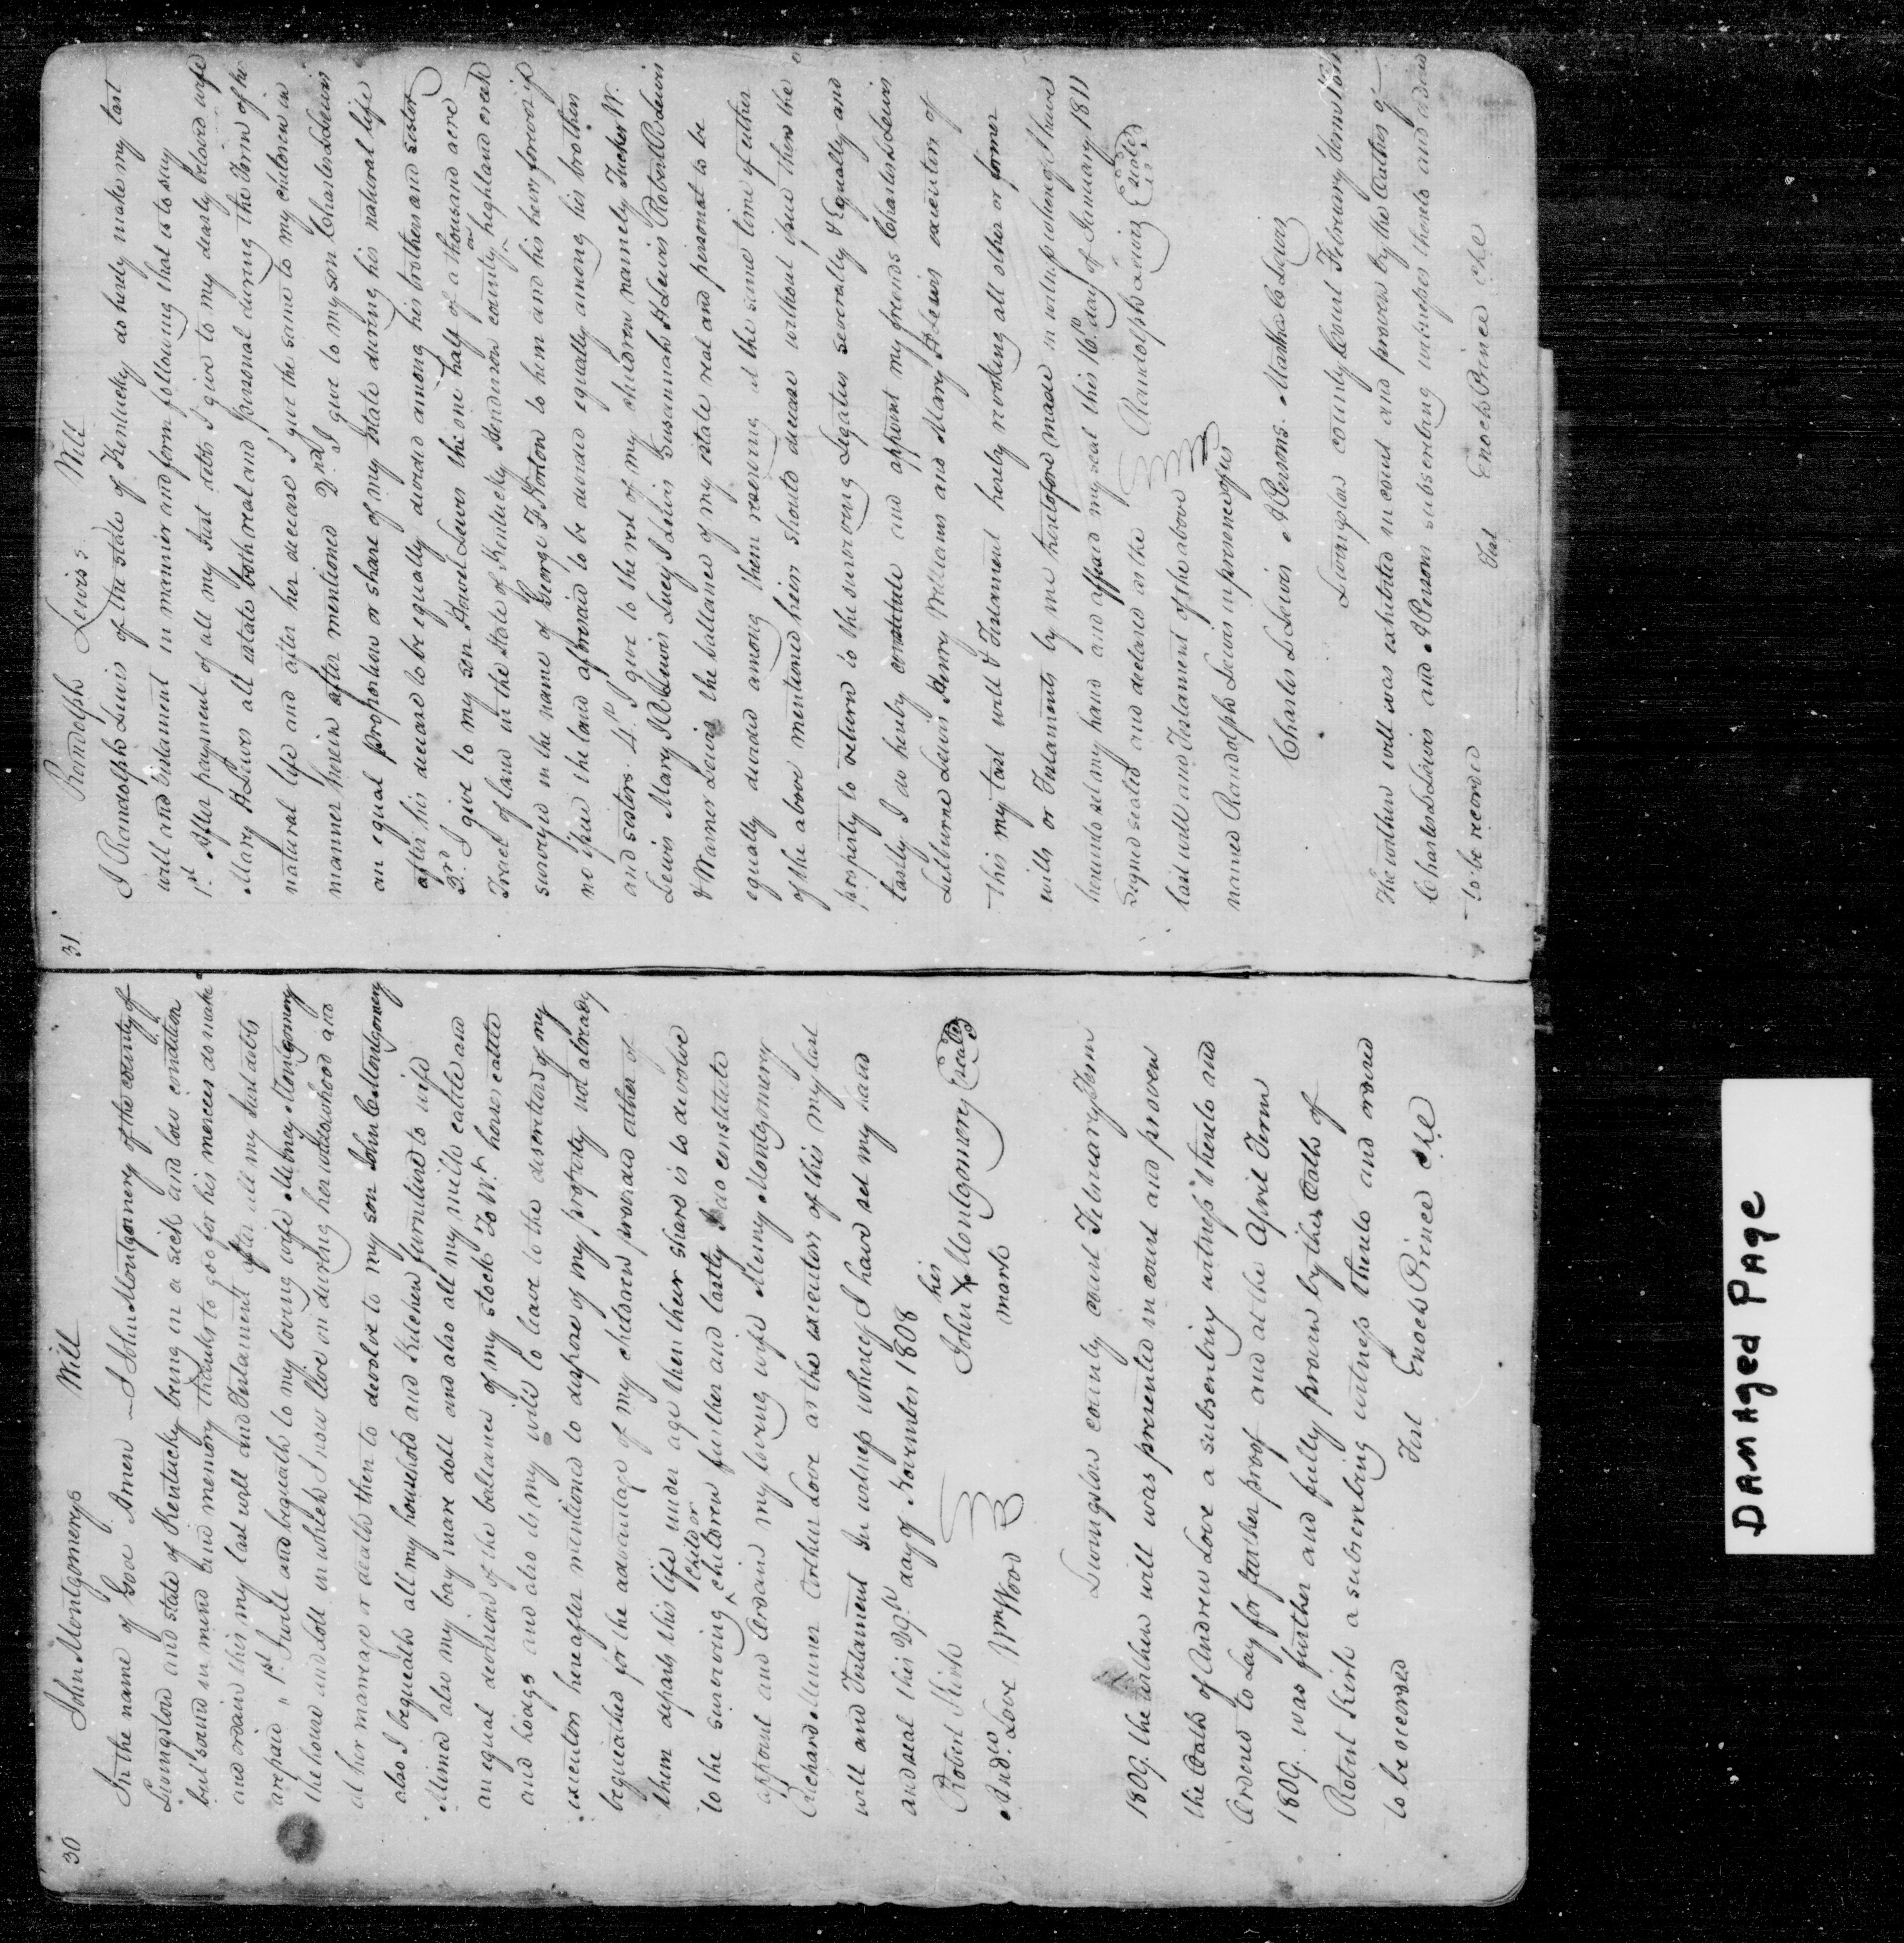 30 John Montgomerys Will
In the name of God Amen I John Montgomery of the county of
Livingston and state of Kentucky being in a sick and low condition
but sound in mind and memory thanks to god for his mercies do make
and ordain this my last will and Testament after all my Just debts
are paid " 1st I will and bequeath to my loving wife Mirney Montgomery
the house and lott in which I now live on during her widdowhood and
at her marrage or death then to devolve to my son John C Montgomery
also I bequeath all my household and Kitchen furniture to wife
Mirned also my bay mare doll and also all my milk cattle and
an equal devidend of the ballance of my stock To Wt. horses cattle
and hoags and also its my will to leave to the discretion of my
executors hereafter mentioned to dispose of my property not already
bequeathed for the advantage of my children provided either of
them departs this life under age then their share is to devolve
to the surviving child or children further and lastly I do constitute
appoint and ordain my loving wife Mirney Montgomery
Richard Miner Arthur Love as the executors of this my last
will and Testament In witness whereof I have set my hand
and seal this 29th day of November 1808
Robert Kirk John his X mark Montgomery (seal)
Andw. Love Wm Wood
Livingston county court February Term
1809. the within will was presented in court and proven
the Oath of Andrew Love a subscribing witness thereto and
Ordered to Lay for further proof and at the April Term
1809. was further and fully proven by the Oath of
Robert Kirk a subscribing witness thereto and ordered
to be recorded
Test Enoch Prince clk
31 Randolph Lewis's Will
I Randolph Lewis of the state of Kentucky do herby make my last
will and testament in manner and form following that is to say
1st. After payment of all my Just debts I give to my dearly beloved wife
Mary H Lewis all estate both real and personal during the Term of her
natural life and after her decease I give the same to my children in
manner herein after mentioned 2nd. I give to my son Charles Lewis
an equal proportion or share of my Estate during his natural life
after his decease to be equally devided among his brothers and sister
3rd I give to my son Howel Lewis the one half of a thousand acre
Tract of land in the State of Kentucky Henderson county on highland creek
surveyed in the name of George F Norton to him and his heirs forever if
no issue the land aforesaid to be devided equally among his brothers
and sisters. 4th. I give to the rest of my children namely Tucker W.
Lewis Mary J R Lewis Lucy J Lewis Susannah H Lewis Robert R Lewis
& Warner Lewis the ballance of my estate real and personal to be
equally devided among them reserving at the same time if either
of the above mentioned heirs should decease without issue then the
property to return to the surviving Legatees severally & Equally and
lastly I do hereby constitute and appoint my friends Charles L Lewis
Lilburne Lewis Henry Williams and Mary H Lewis executors of
this my last will & Testament hereby revoking all other or former
wills or Testaments by me heretofore made in witness whereof I have
hereunto set my hand and affixed my seal this 16th. day of January 1811
Signed sealed and declared as the Randolph Lewis (seal)
last will and Testament of the above
named Randolph Lewis in presence of us
Charles L Lewis A Persons. Martha C Lewis
Livingston county Court February Term 1811
The within will was exhibited in court and proven by the Oaths of
Charles L Lewis and A Persons subscribing witnesses thereto and ordered
to be recorded
Test Enoch Prince clk
DAMAged PAge